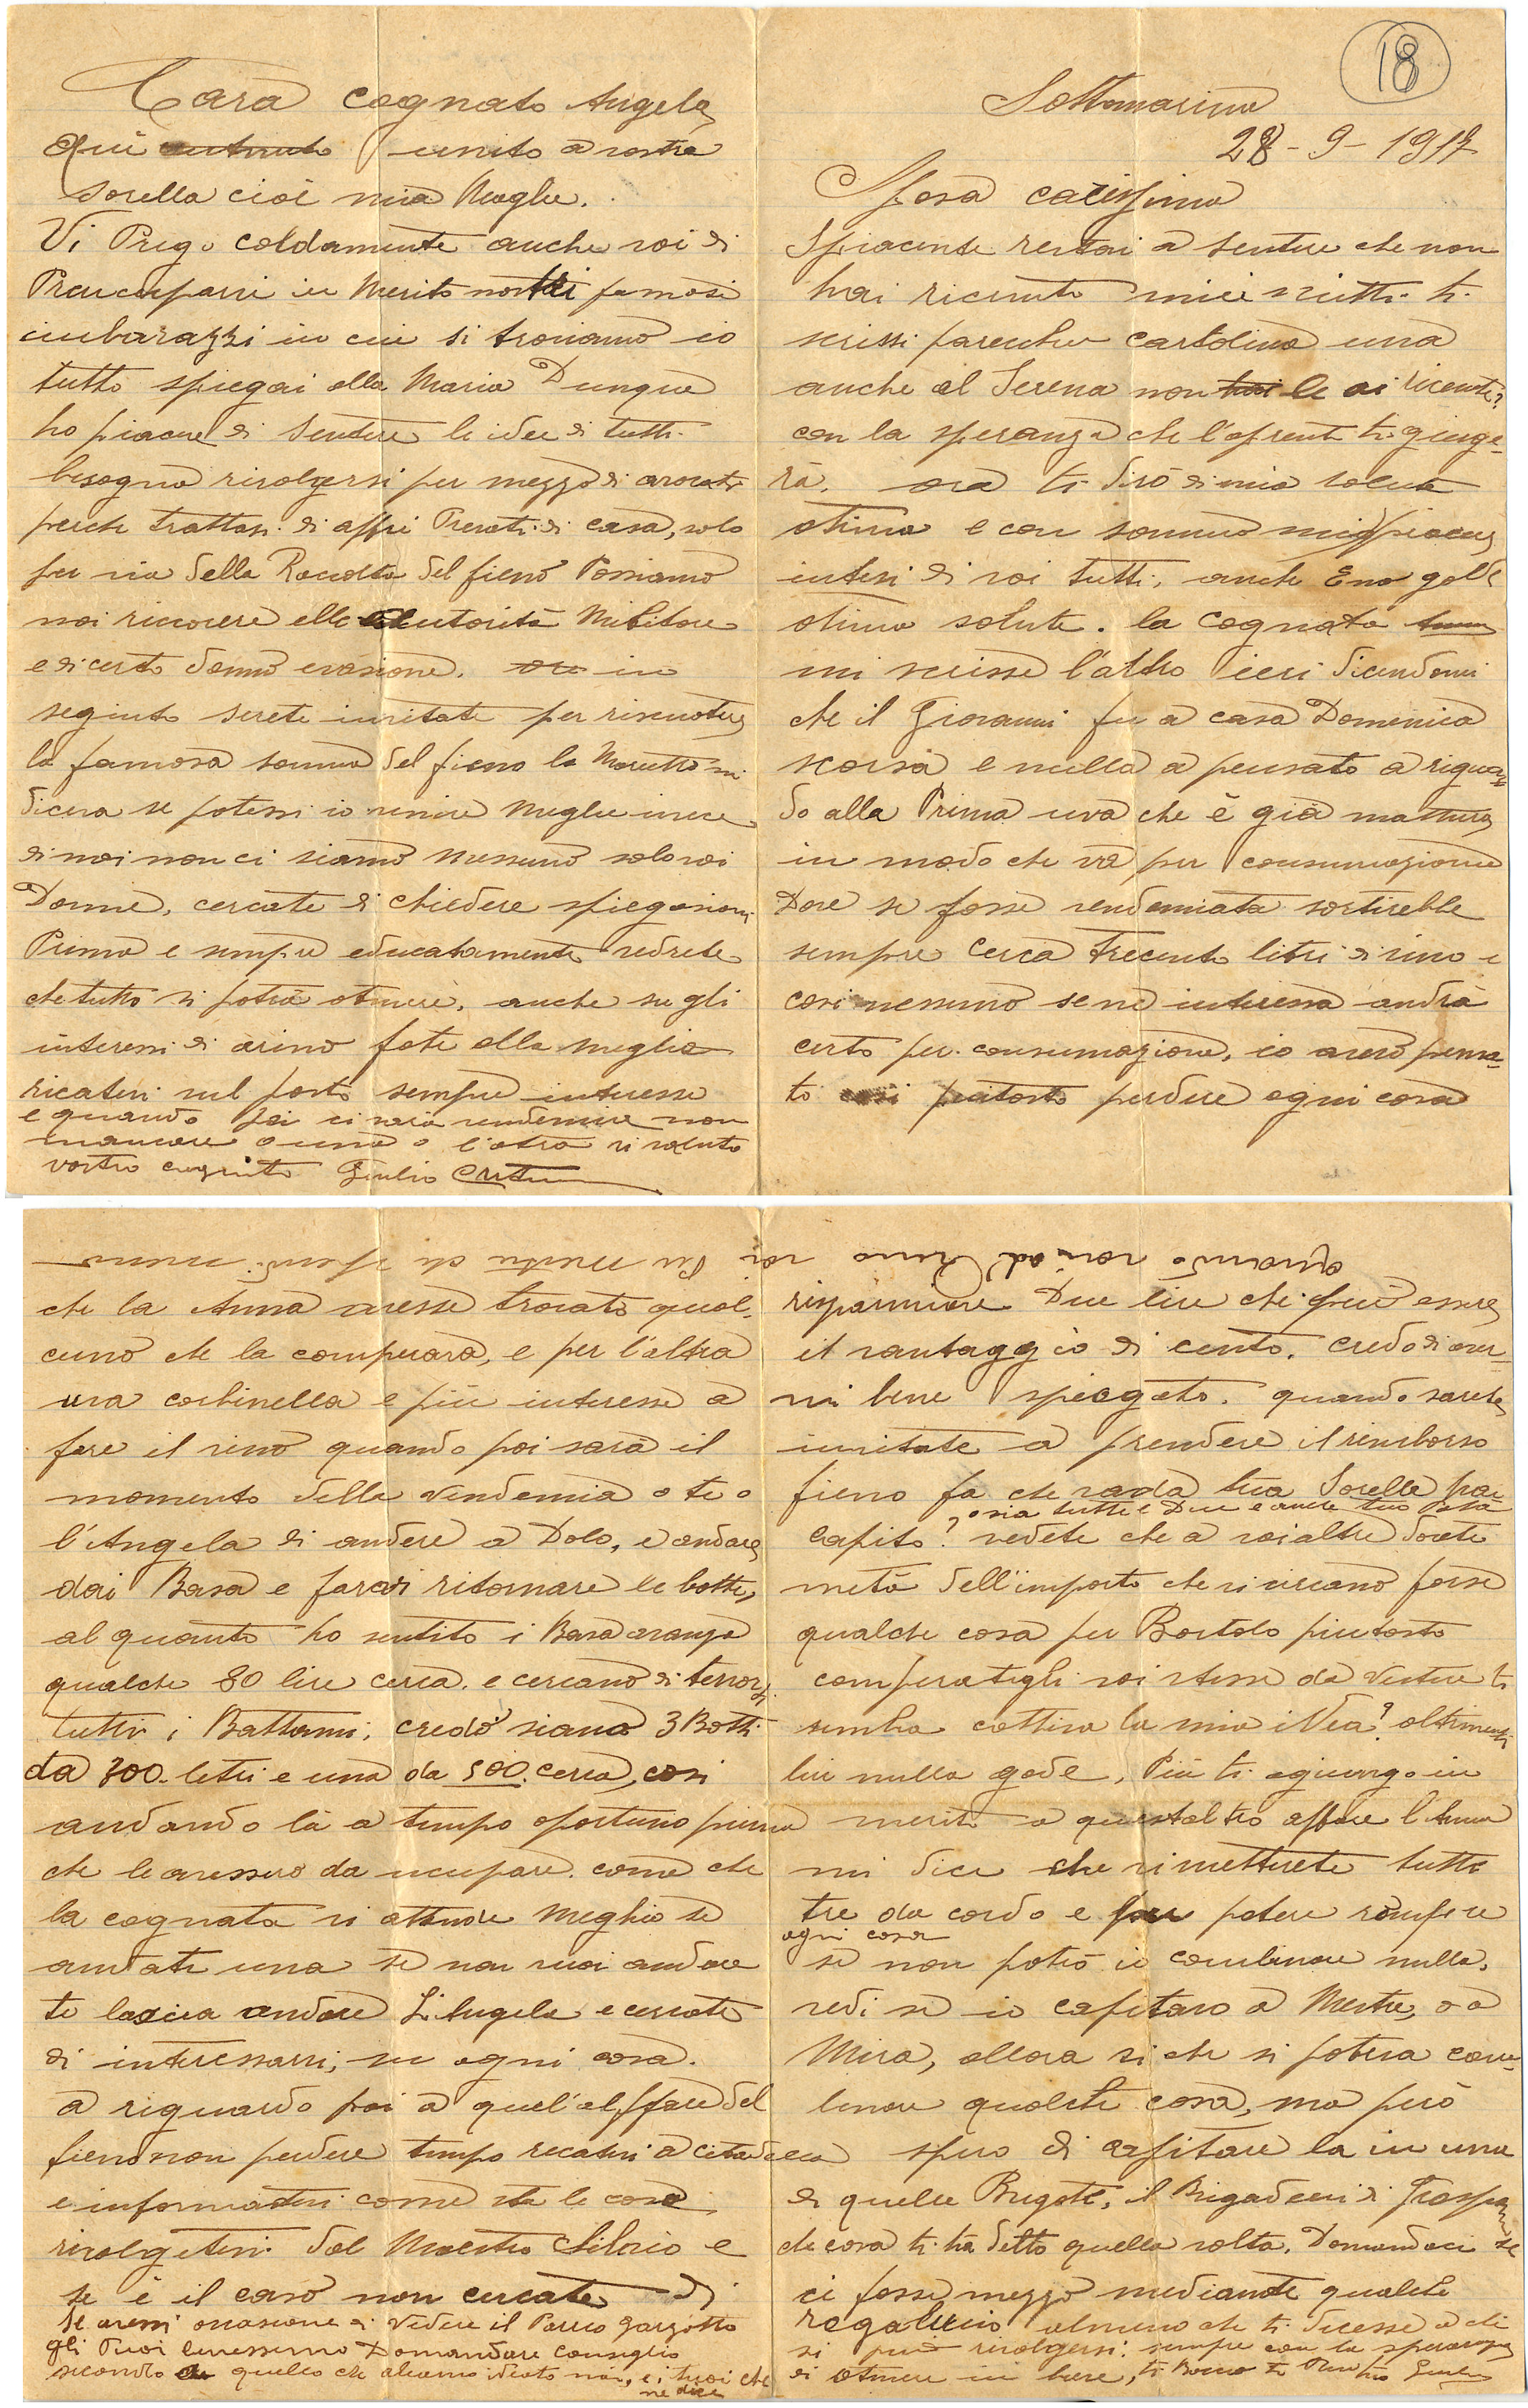 18
Sottomarina
28-9-1917
Sposa carissima
Spiacente restai a sentire che non
hai ricevuto miei scritti. ti
scrissi parecchie cartolina una
anche al Serena non hai le ai ricevute?
con la speranza che l'apresente ti giunge-
rà. ora ti dirò di mia salute
otima e con sommo mio piacere
intesi di voi tutti, anche Eno gode
otima salute. la cognata
mi scrisse l'altro ieri dicendomi
che il Giovanni fu a casa Domenica
scorsa e nulla a pensato a riguar-
do alla Prima uva che è già mattura
in modo che va per consumazione
Dove se fosse vendemiata sortirebbe
sempre cerca trecento litri di vino e
cosi nessuno se ne interessa andrà
certo per consumazione, io avevo pensa-
to cosi piutosto perdere ogni cosa
che la Anna avesse trovato qual-
cuno che la comperava, e per l'altra
uva corbinella e più interesse a
fare il vino quando poi sarà il
momento della vendemia o te o
l'Angela di andare a Dolo, e andare
dai Basa e farvi ritornare le botte,
al quanto ho sentito i Basa avanza
qualche 80 lire cerca. e cercano di tenersi
tutti i Bottami, credo siano 3 Botti
da 300 litri e una da 500 cerca, cosi
andando là a tempo oportuno prima
che le avessero da ocupare. come che
la cognata vi attende Meglio se
andate una se non vuoi andare
te lascia andare L'Angela e cercate
di interessarvi, su ogni cosa.
a riguardo poi a quel'affare del
fieno non perdere tempo recatevi a Citadella
e informatevi come sta le cose
rivolgetevi dal Maestro Silvio e
se è il caso non cercate di
Se avessi ocasione di vedere il Parco Garzotto
gli Puoi benessimo Domandare Consiglio
secondo quello che abiamo ideato noi, e i tuoi che
ne dice
risparmiare Due lire che può essere
il vantaggio di cento. credo di aver-
mi bene spiegato. quando sarete
invitate a prendere il rimborso
fieno fa che vada tua Sorella poi
o sia tutte e Due e anche tuo papà
capito? vedete che a voialtre dovete
metà dell'importo che vi cercano forse
qualche cosa per Bortolo piutosto
comperategli voi stesse da vestire ti
sembra cattiva la mia idea? altrimenti
lui nulla gode, Più ti agiungo in
merito a quest'altro affare l'Anna
mi dice che vi metterete tutti
tre da cordo e per potere rompere
ogni cosa
se non potrò io combinare nulla,
vedi se io capitavo a Mestre, o a
Mira, allora si che si poteva com-
binare qualche cosa, ma però
spero di capitare la in una
di quelle Brigate, il Brigadiere di
che cosa ti ha detto quella volta. Domandaci se
ci fosse mezzo mediante qualche
regaluccio almeno che ti dicesse a chi
si può rivolgersi: sempre con la speranza
di otenere in bene, ti Bacio tuo Giulio
Quando vai ad
Cara cognata Angela
Qui unito a vostra
sorella cioè mia Moglie.
Vi Prego caldamente anche voi di
Preocuparvi in Merito nostri famosi
imbarazzi in cui si troviamo io
tutto spiegai alla Maria Dunque
ho piacere di Sentire le idee di tutti.
bisogna rivolgersi per mezzo di avocato
perche trattasi di affari Privati di casa, solo
per via della Racolta del fieno Possiamo
noi ricorere alle autorità Militare
e di certo danno evasione. ora in
seguito sarete invitate per riscuotere
la famosa somma del fieno la Marietta mi
diceva se potessi io venire Meglio invece
di noi non ci siamo Nessuno solo voi
Donne, cercate di chiedere spiegazioni
Prima e sempre educatamente vedrete
che tutto si potrà otenere, anche su gli
interessi di Arino fate alla meglio
recatevi sul posto sempre interesse
e quando poi ci sarà vendemia non
mancare o una o l'altra vi saluto
vostro cognato Giulio